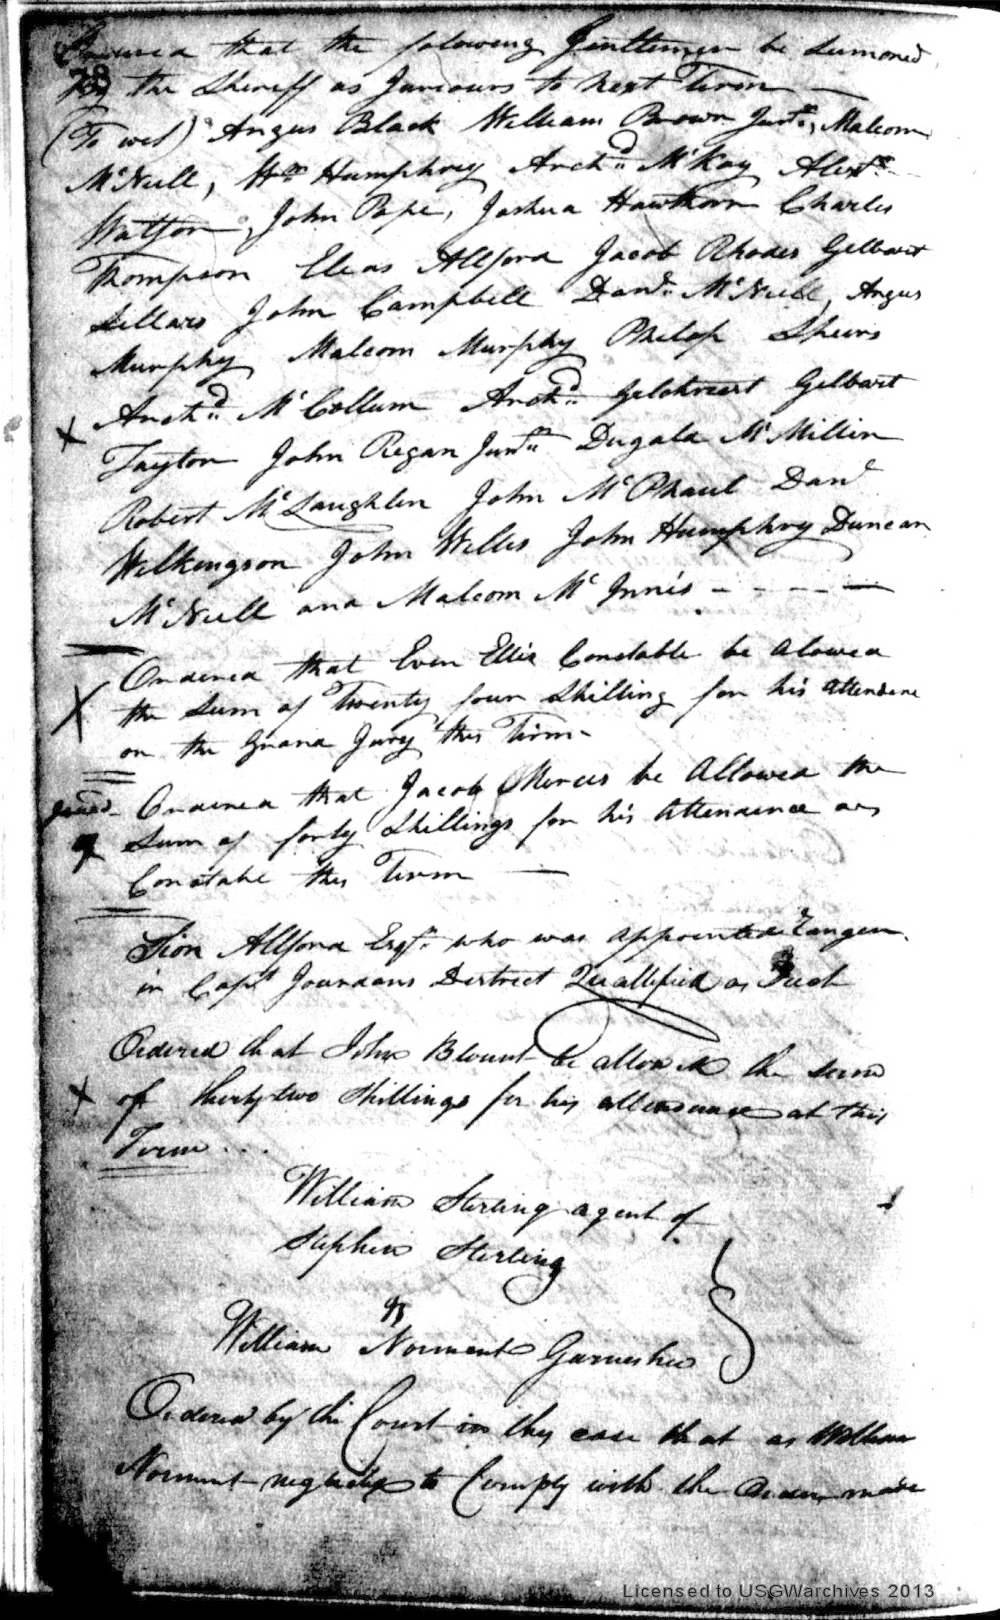 Ordered that the folowing Gentlemen be Sumoned
78
by the Sheriff as Juriours to next Term —
(To wit) Angus Black William Brown Junr., Malcom
McNeill, Wm Humphrey Archd. McKay Alexr.
Watson, John Pope, Joshua Hawthorn Charles
Thompson Elias Allford Jacob Rhodes Gilbart
Sellars John Campbell Danl. McNeill, Angus
Murphy Malcom Murphy Philop Speirs
X Archd. McCollum Archd. Gilchreist Gilbart
Taylor John Regan Junr. Dugald McMillin
Robert McLaughlin John McPhaul Danl
Wilkingson John Willis John Humphrey Duncan
McNeill and Malcom McInnis - - - - —
Ordered that Even Ellis Constable be Alowed
X the Sum of Twenty four Shilling for his attendene
on the Grand Jury this Term -
Ordered that Jacob Mercer be Allowed the
Sum of forty Shillings for his attendence as
Constable this Term —
Sion Allford Esqr. who was appointed Ranger
in Capt Jourdans District Quallified as Such
Ordered that John Blount be allowed the sum
X of thirty two Shillings for his attendance at this
Term ...
William Sterling agent of
Stephen Sterling
vs
William Norment Garnishee
Ordered by the Court in this case that as William
Norment neglects to Comply with the Order made
Licensed to USGWarchives 2013